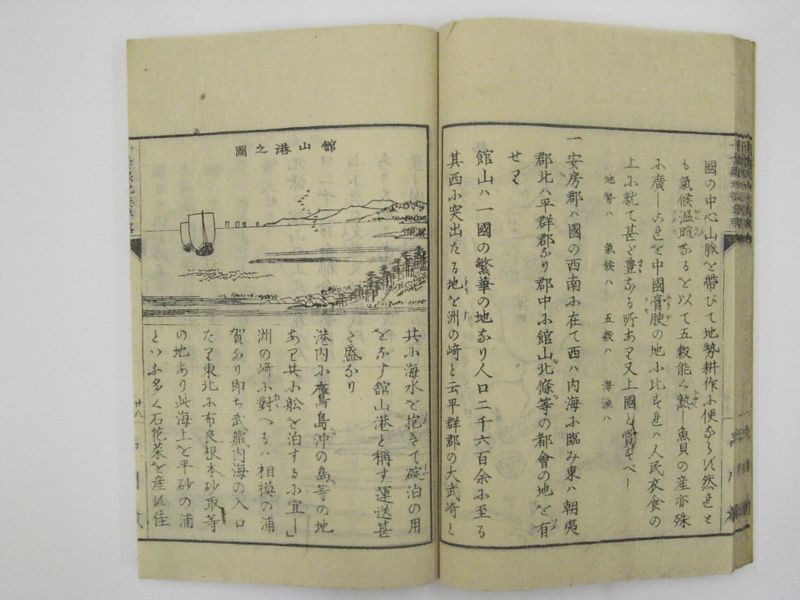 國の中心山脉を帶びて地勢耕作ふ便ならん然れと
も氣候温暄なるを以て五穀能く熟し魚貝の産亦殊
ふ廣しこれを中國膏腴の地ふ比すれハ人民衣食の
上ふ就て甚と豊なる所あり又上國と賞すべし
地勢ハ 氣候ハ 五穀ハ 海漁ハ
一安房郡ハ國の西南ふ在て西ハ内海ふ臨み東ハ朝夷
郡北ハ平群郡なり郡中ふ館山北條等の都會の地を有
せり
館山ハ一國の繁華の地なり人口二千六百余ふ至る
其西ふ突出たる地を洲の﨑と云平群郡の大武﨑と
館山港之圖
共ふ海水を抱きて碇泊の用
をなす舘山港と稱す運送甚
た盛なり
港内ふ鷹島沖の島等の地
あり共ふ舩を泊するふ宜し
洲の﨑ふ對へるハ相模の浦
賀なり即ち武藏内海の入口
たり東北ふ布良根本砂取等
の地あり此海上を平砂の浦
といふ多く石花菜を産ん佳